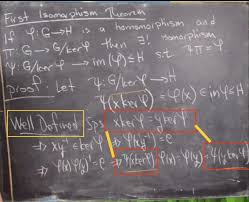 First Isomorphism Theorem
If φ: G → H is a homomorphism and
π: G → G/kerφ then ∃! isomorphism
Ψ: G/kerφ → im(φ) ≤ H s.t. Ψπ = φ
proof: Let Ψ: G/kerφ → H
Ψ(xkerφ) = φ(x) ∈ imφ ≤ H
Well Defined Sps xkerφ = ykerφ
⇒ xy⁻¹ ∈ kerφ ⇒ φ(xy⁻¹) = e
⇒ φ(x)φ(y)⁻¹ = e ⇒ Ψ(xkerφ) = φ(x) = φ(y) = Ψ(ykerφ)